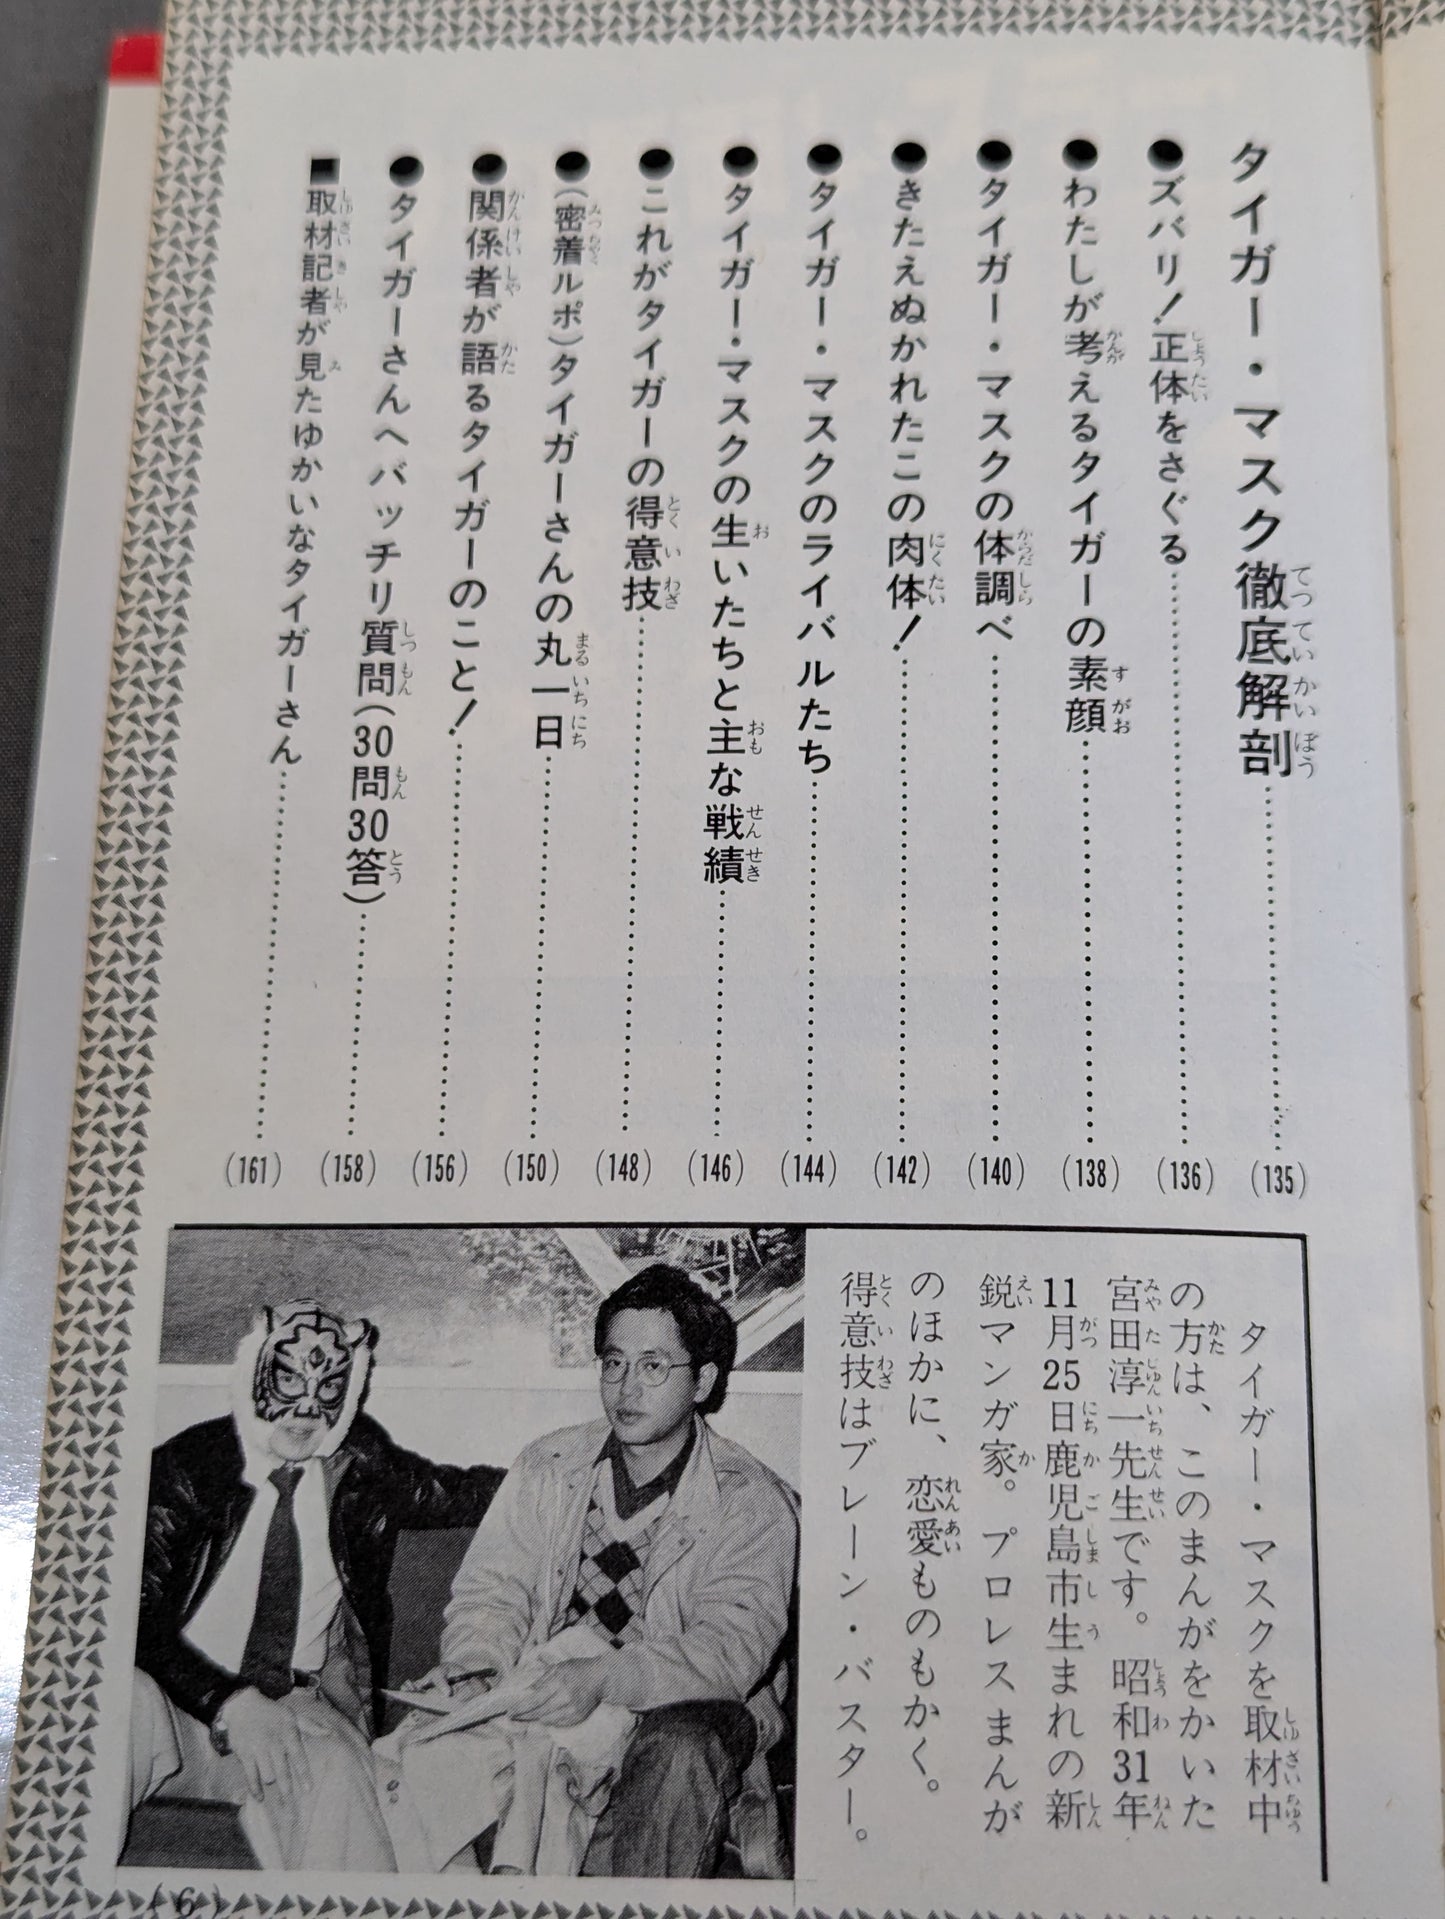 タイガー・マスク徹底解剖……(135)
●ズバリ!正体をさぐる……(136)
●わたしが考えるタイガーの素顔……(138)
●タイガー・マスクの体調べ……(140)
●きたえぬかれたこの肉体!……(142)
●タイガー・マスクのライバルたち……(144)
●タイガー・マスクの生いたちと主な戦績……(146)
●これがタイガーの得意技……(148)
●(密着ルポ)タイガーさんの丸一日……(150)
●関係者が語るタイガーのこと!……(156)
●タイガーさんへバッチリ質問(30問30答)……(158)
■取材記者が見たゆかいなタイガーさん……(161)
タイガー・マスクを取材中
の方は、このまんがをかいた
宮田淳一先生です。昭和31年
11月25日鹿児島市生まれの新
鋭マンガ家。プロレスまんが
のほかに、恋愛ものもかく。
得意技はブレーン・バスター。
(6)